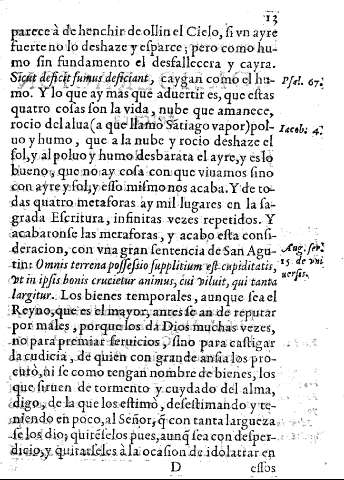 13
parece à de henchir de ollin el Cielo, si vn ayre
fuerte no lo deshaze y esparce; pero como hu-
mo sin fundamento el desfallecera y cayra.
Sicut deficit fumus deficiant, caygan como el hu-
mo. Y lo que ay mas que aduertir es, que estas
quatro cosas son la vida, nube que amanece,
rocio del alua (a que llamò Satiago vapor) pol-
uo y humo, que a la nube y rocio deshaze el
sol, y al poluo y humo desbarata el ayre, y es lo
bueno, que no ay cosa con que viuamos sino
con ayre y sol, y esso mismo nos acaba. Y de to-
das quatro metaforas ay mil lugares en la sa-
grada Escritura, infinitas vezes repetidos. Y
acabaronse las metaforas, y acabo esta consi-
deracion, con vna gran sentencia de San Agu-
tin: Omnis terrena possessio supplitium est cupiditatis,
vt in ipsis bonis crucietur animus, cui viluit, qui tanta
largitur. Los bienes temporales, aunque sea el
Reyno, que es el mayor, antes se an de reputar
por males, porque los dà Dios muchas vezes,
no para premiar seruicios, sino para castigar
la cudicia, de quien con grande ansia los pro-
curò, ni se como tengan nombre de bienes, los
que siruen de tormento y cuydado del alma,
digo, de la que los estimò, desestimando y te-
niendo en poco, al Señor, q̃ con tanta largueza
se los dio; quirẽselos pues, aunq̃ sea con desper-
dicio, y quitarseles à la ocasion de idolatrar en
D essos
Psal. 67.
Iacob. 4.
Aug. ser.
15. de vni
uersis.